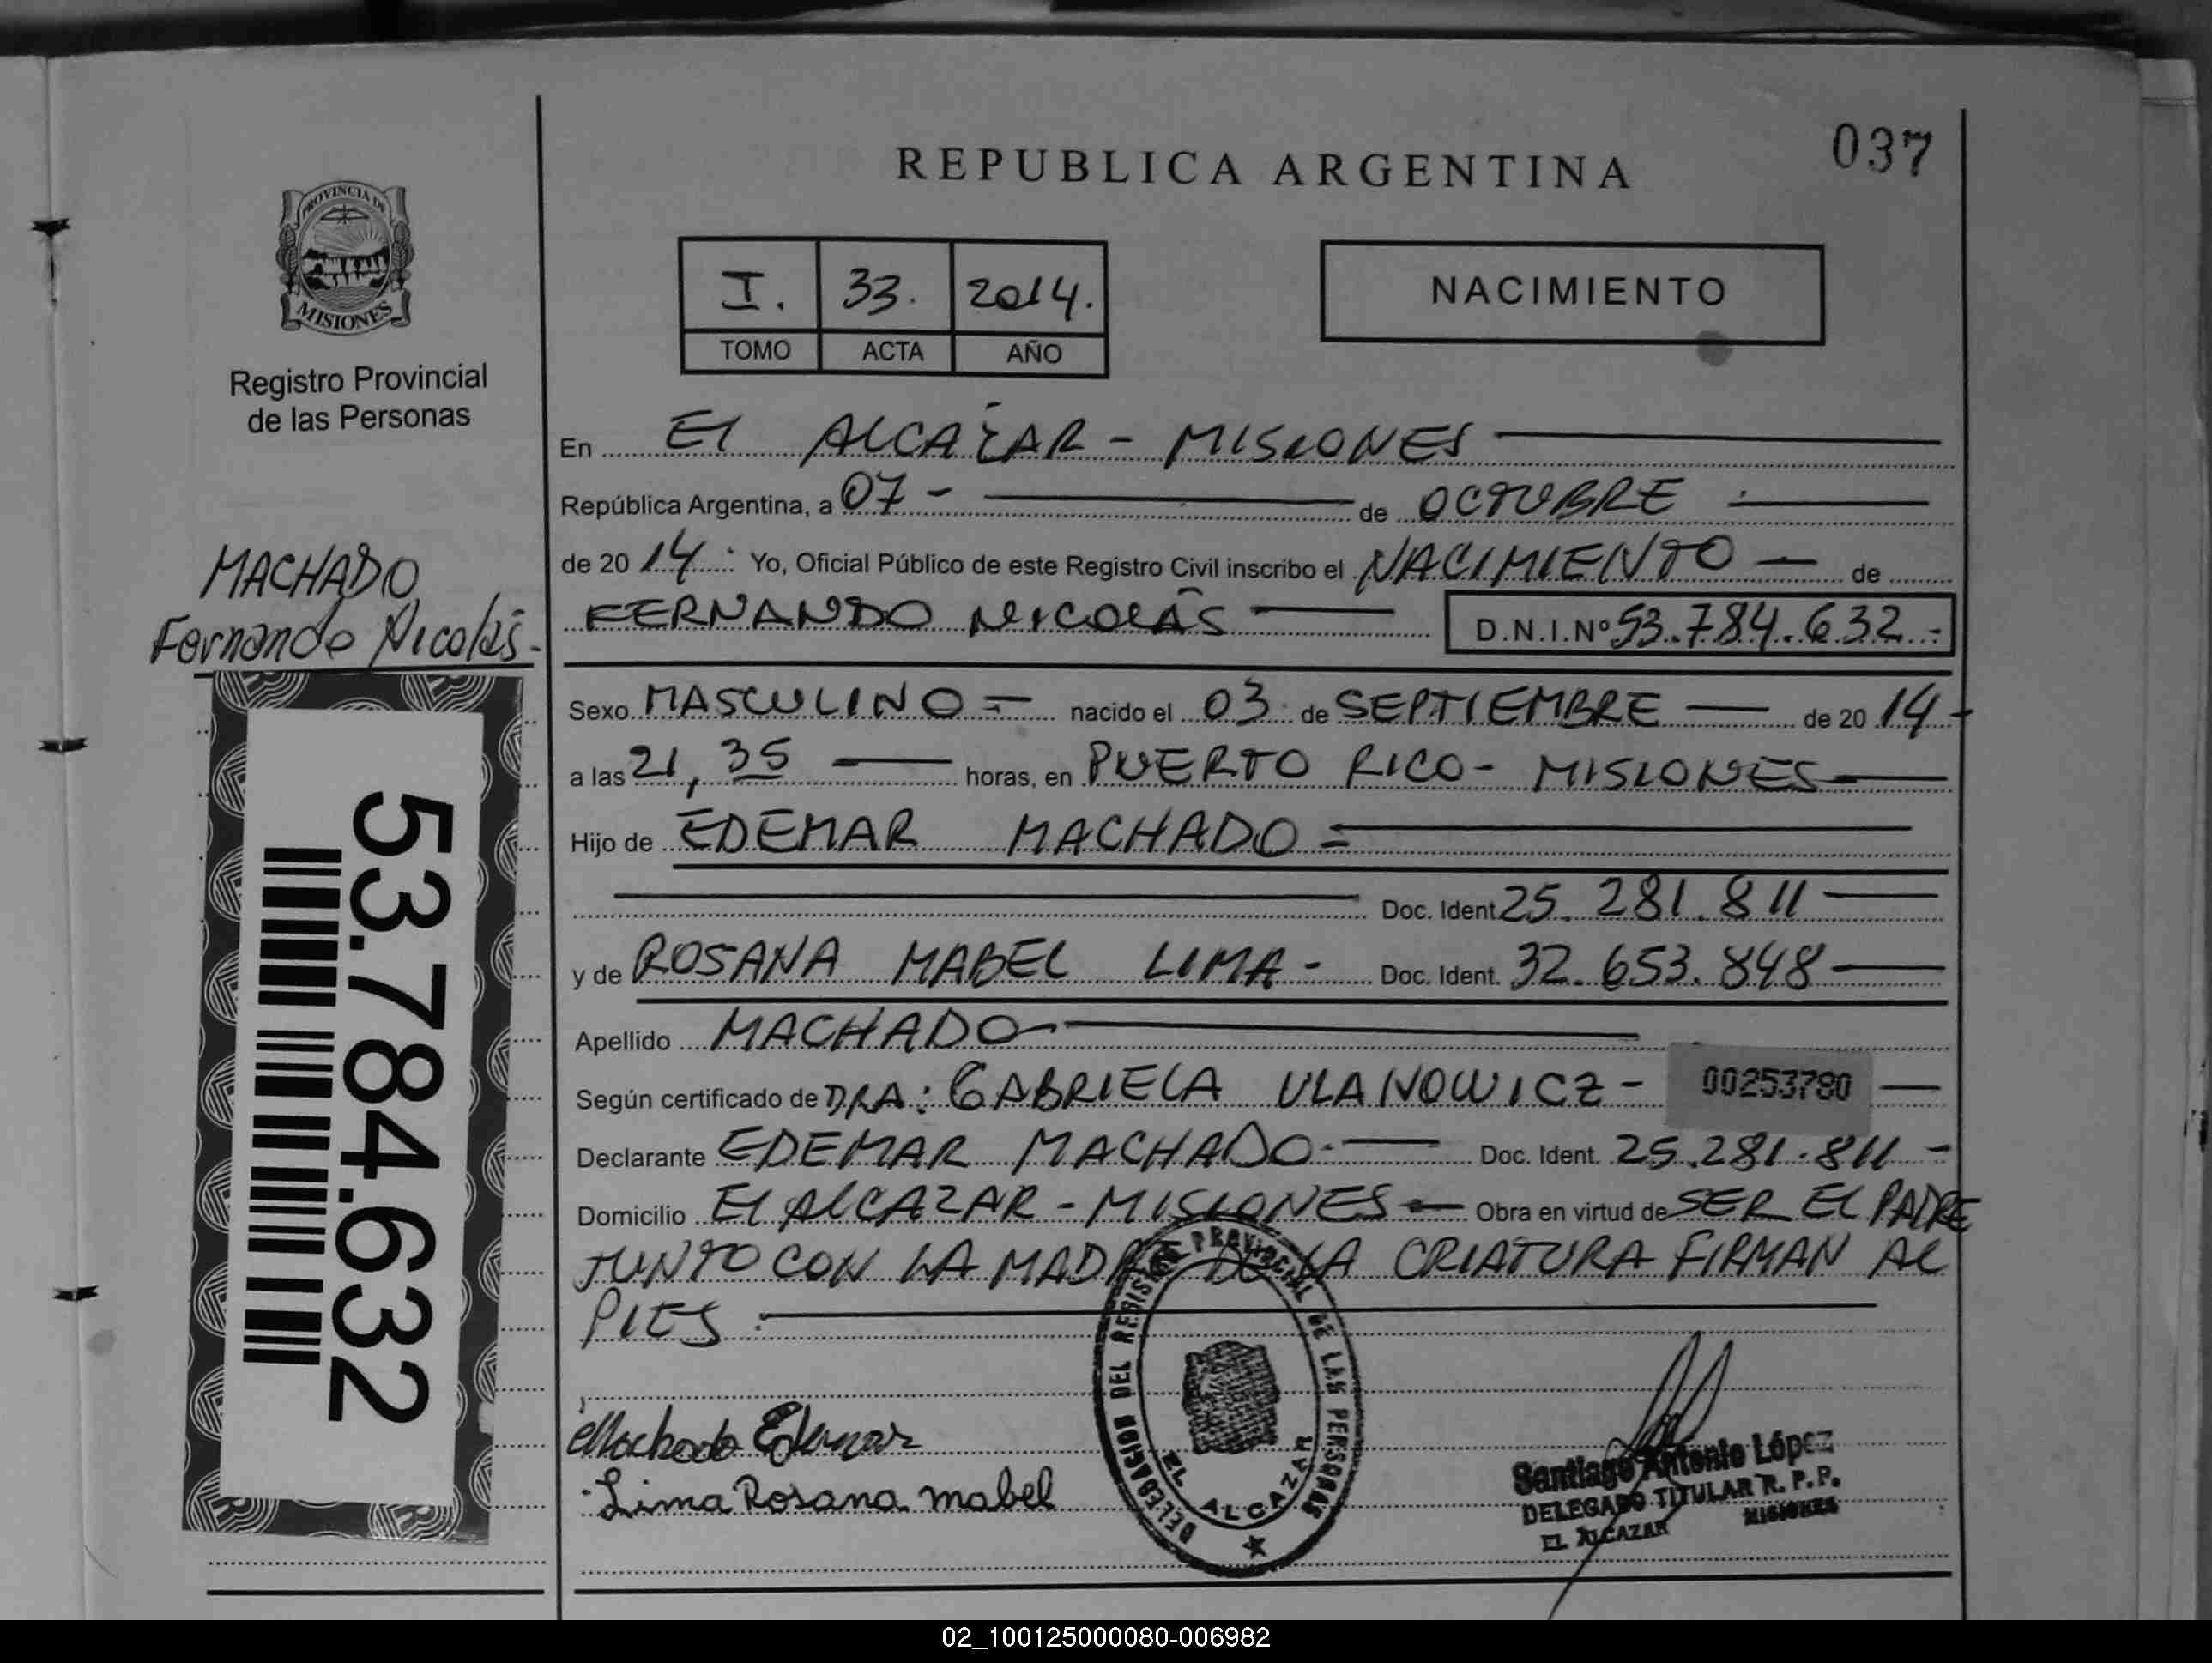 037
REPUBLICA ARGENTINA
PROVINCIA DE
MISIONES
Registro Provincial
de las Personas
I. 33. 2014.
TOMO ACTA AÑO
NACIMIENTO
En EL ALCAZAR - MISIONES
República Argentina, a 07 - de OCTUBRE
de 20 14 : Yo, Oficial Público de este Registro Civil inscribo el NACIMIENTO — de
FERNANDO NICOLÁS D.N.I.Nº 53.784.632.-
MACHADO
Fernando Nicolás -
53.784.632
Sexo MASCULINO nacido el 03 de SEPTIEMBRE de 20 14 -
a las 21, 35 horas, en PUERTO RICO - MISIONES
Hijo de EDEMAR MACHADO
Doc. Ident 25. 281. 811
y de ROSANA MABEL LIMA - Doc. Ident. 32. 653. 848
Apellido MACHADO
Según certificado de DRA: GABRIELA ULANOWICZ - 00253780
Declarante EDEMAR MACHADO Doc. Ident. 25.281.811 -
Domicilio EL ALCAZAR - MISIONES Obra en virtud de SER EL PADRE
JUNTO CON LA MADRE DE LA CRIATURA FIRMAN AL
PIES
Machado Edemar
Lima Rosana mabel
DELEGACION DEL REGISTRO PROVINCIAL DE LAS PERSONAS
EL ALCAZAR
Santiago Antonio López
DELEGADO TITULAR R. P. P.
EL ALCAZAR MISIONES
02_100125000080-006982